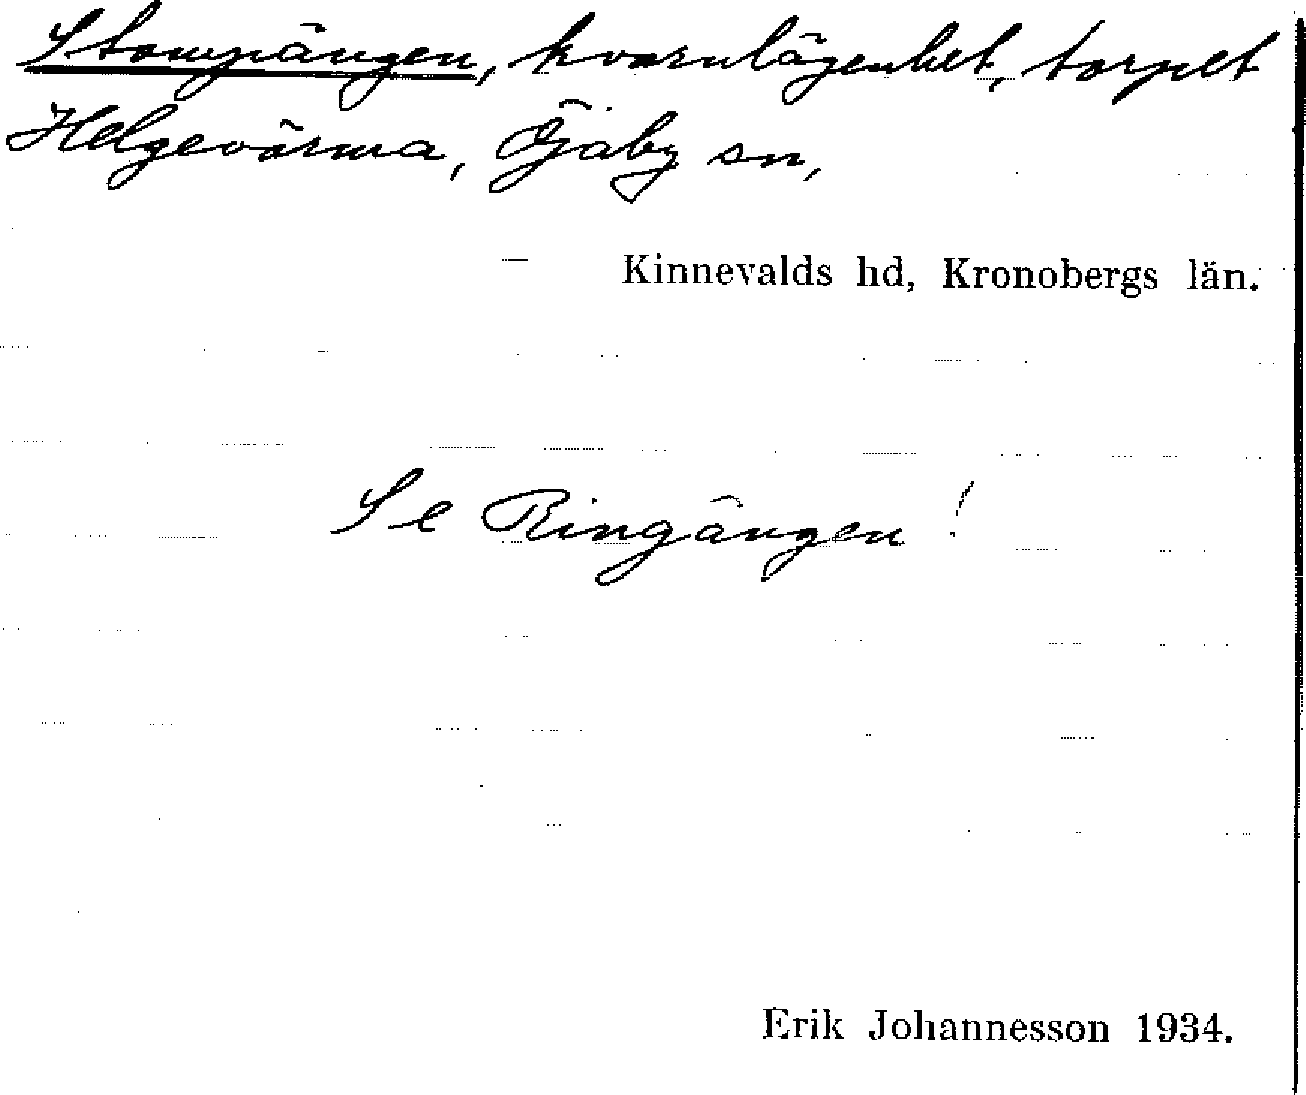 Stompängen, kvarnlägenhet, torplt
Helgevärma, Öjaby sn,
Kinnevalds hd, Kronobergs län.
Se Ringängen!
Erik Johannesson 1934.